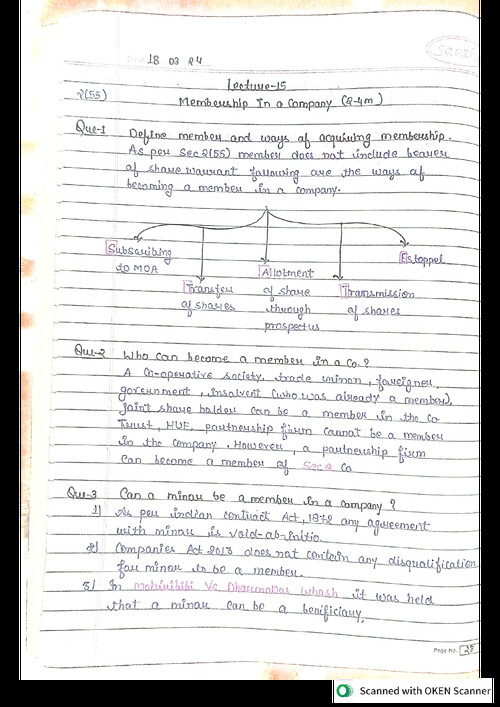 18 03 24
Lecture-15
2(55)
Membership In a Company (2-4m)
Que-1 Define member and ways of acquiring membership.
As per Sec 2(55) member does not include bearer
of share warrant following are the ways of
becoming a member in a company.
Subscribing
to MOA
Transfer
of shares
Allotment
of share
through
prospectus
Transmission
of shares
Estoppel
Que-2 Who can become a member in a Co.?
A Co-operative society, trade union, foreigner,
government, insolvent (who was already a member),
joint share holder can be a member in the Co
Trust, HUF, partnership firm cannot be a member
in the company. However, a partnership firm
can become a member of Sec 8 Co
Que-3 Can a minor be a member in a company?
1) As per indian contract Act, 1872 any agreement
with minor is void-ab-initio.
2) Companies Act 2013 does not contain any disqualification
for minor to be a member.
3) In Mohiribibi Vs Dharmodas Ghosh it was held
that a minor can be a benificiary.
Page No. 28
Scanned with OKEN Scanner